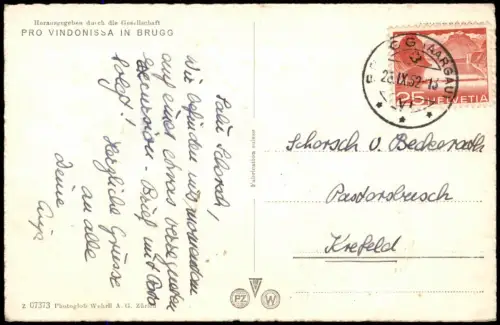 Herausgegeben durch die Gesellschaft
PRO VINDONISSA IN BRUGG
Salü Schorsch,
Wir befinden uns momentan
auf einer etwas
excursion - Brief mit Foto
folgt!
Herzliche Grüsse
an alle
Deine
Fabrication suisse
BRUGG (AARGAU)
28.IX.52-15
25 HELVETIA
Schorsch v. Beckerath
Pastorsbusch
Krefeld
PZ W
Z 07373 Photoglob-Wehrli A.-G. Zürich